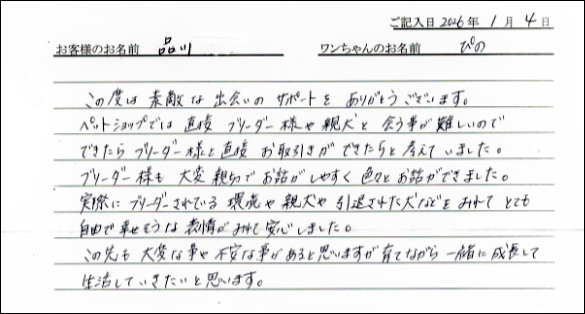 ご記入日 2026年 1月 4日
お客様のお名前 品川 ワンちゃんのお名前 ぴの
この度は 素敵な 出会いの サポートを ありがとうございます。
ペットショップでは 直接 ブリーダー様や 親犬と 会う事が 難しいので
できたら ブリーダー様と 直接 お取引きが できたらと 考えて いました。
ブリーダー様も 大変 親切で お話が しやすく 色々と お話が できました。
実際に ブリーダーされている 環境や 親犬や 引退された犬などを みれて とても
自由で 幸せそうな 表情が みれて 安心しました。
この先も 大変な事や 不安な事が あると 思いますが 育てながら 一緒に 成長して
生活して いきたいと 思います。